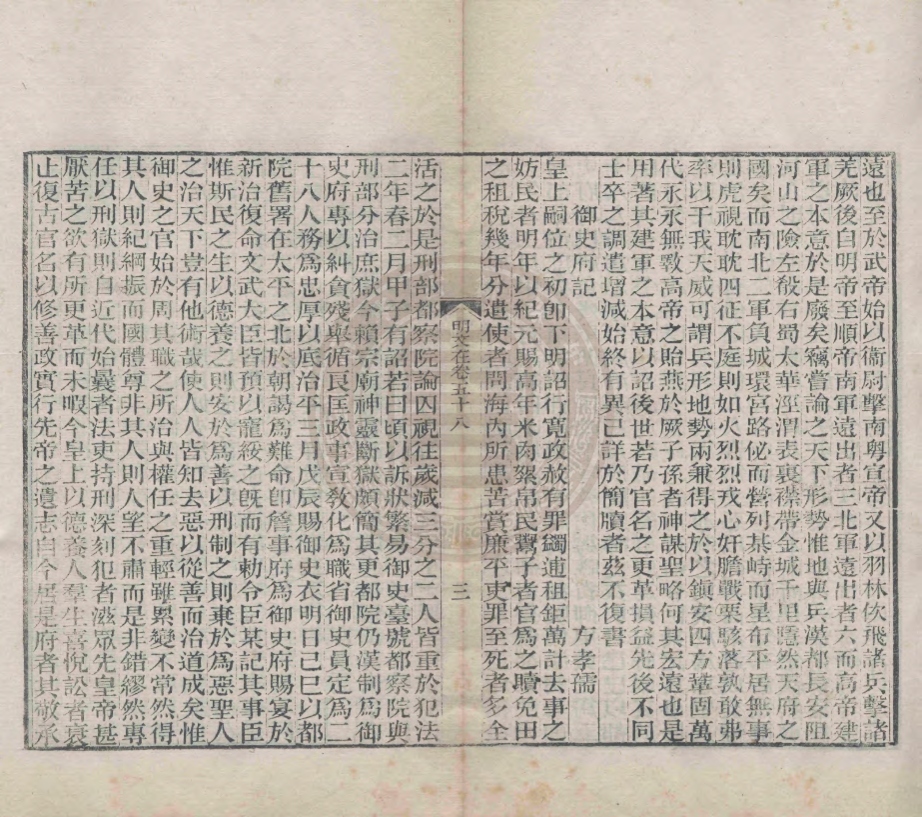 遠也至於武帝始以衞尉擊南粤宣帝又以羽林佽飛諸兵擊諸
羌厥後自明帝至順帝南軍遠出者三北軍遠出者六而高帝建
軍之本意於是廢矣竊嘗論之天下形勢惟地與兵漢都長安阻
河山之險左殽右蜀太華涇渭表裏襟帶金城千里隱然天府之
國矣而南北二軍負城環宮路佖而營列基峙而星布平居無事
則虎視耽耽四征不庭則如火烈烈戎心奸膽戰栗駭落孰敢弗
率以干我天威可謂兵形地勢兩兼得之於以鎭安四方鞏固萬
代永永無斁高帝之貽燕於厥子孫者神謀聖略何其宏遠也是
用著其建軍之本意以詔後世若乃官名之更革損益先後不同
士卒之調遣增減始終有異已詳於簡牘者茲不復書
御史府記 方孝孺
皇上嗣位之初卽下明詔行寬政赦有罪蠲逋租鉅萬計去事之
妨民者明年以紀元賜高年米肉絮帛民鬻子者官爲之贖免田
之租稅幾年分遣使者問海內所患苦賞廉平吏罪至死者多全
明文在卷五十八
三
活之於是刑部都察院論囚視往歲減三分之二人皆重於犯法
二年春二月甲子有詔若曰頃以訴狀繁易御史臺號都察院與
刑部分治庶獄今賴宗廟神靈斷獄頗簡其更都院仍漢制爲御
史府專以糾貪殘舉循良匡政事宣敎化爲職省御史員定爲二
十八人務爲忠厚以底治平三月戊辰賜御史衣明日己巳以都
院舊署在太平之北於朝謁爲難命卽詹事府爲御史府賜宴於
新治復命文武大臣皆預以寵綏之旣而有勅令臣某記其事臣
惟斯民之生以德養之則安於爲善以刑制之則棄於爲惡聖人
之治天下豈有他術哉使人人皆知去惡以從善而治道成矣惟
御史之官始於周其職之所治與權任之重輕雖累變不常然得
其人則紀綱振而國體尊非其人則人望不肅而是非錯繆然專
任以刑獄則自近代始曩者法吏持刑深刻犯者滋眾先皇帝甚
厭苦之欲有所更革而未暇今皇上以德養人羣生喜悅訟者衰
止復古官名以修善政實行先帝之遺志自今居是府者其敬承